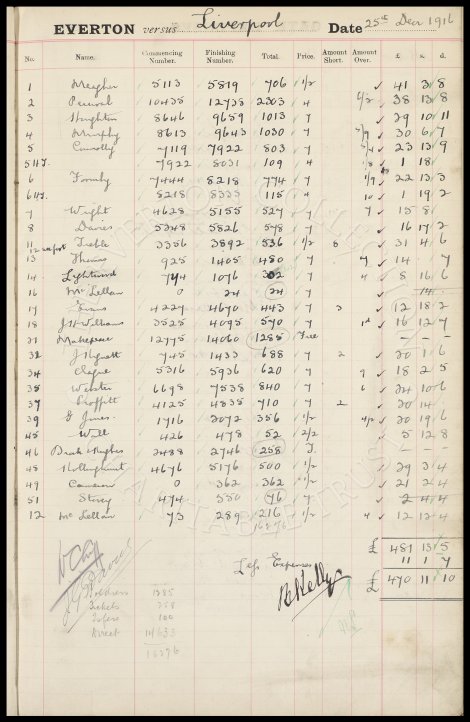 EVERTON versus Liverpool Date 25th Decr 1916
No. Name. Commencing Number. Finishing Number. Total. Price. Amount Short. Amount Over. £ s. d.
1 Meagher 5113 5819 706 1/2 41 3 8
2 Percival 10435 12738 2303 4 38 13 8
3 Houghton 8646 9659 1013 7 29 10 11
4 Murphy 8613 9643 1030 7 30 6 7
5 Connolly 7119 7922 803 7 23 13 9
5 HT. 7922 8031 109 4 1 18
6 Formby 7444 8218 774 7 1/9 22 13 3
6 HT. 8218 8333 115 4 1 19 2
7 Wight 4628 5155 527 7 7 15 8
8 Davies 5248 5826 578 7 16 17 2
11 Treble 3356 3892 536 1/2 8 31 4 6
13 Thomas 925 1405 480 7 7 14 7
14 Lightwind 774 1076 302 7 4 8 16 6
16 McLellan 0 24 24 7 14
17 Evans 4227 4670 443 7 3 12 18 2
18 J H Williams 3525 4095 570 7 16 12 7
31 Makepeace 12775 14060 1285 Free
32 J Hignett 745 1433 688 7 2 20 1 6
34 Clague 5316 5936 620 7 18 2 5
35 Webster 6698 7538 840 7 6 24 10 6
37 Proffitt 4125 4835 710 7 2 20 14
39 Jones 1716 2072 356 1/2 4/2 20 19 6
45 Will 426 478 52 2/2 5 12 8
46 Hughes 2488 2746 258
48 Hollinghurst 4676 5176 500 1/2 29 3 4
49 Cameron 0 362 362 1/2 21 2 4
51 Storey 474 550 76 7 2 4 4
12 McLellan 73 289 216 1/2 4 12 12 4
£ 481 13 5
Less Expenses 11 1 7
£ 470 11 10
1285
Tickets 258
100